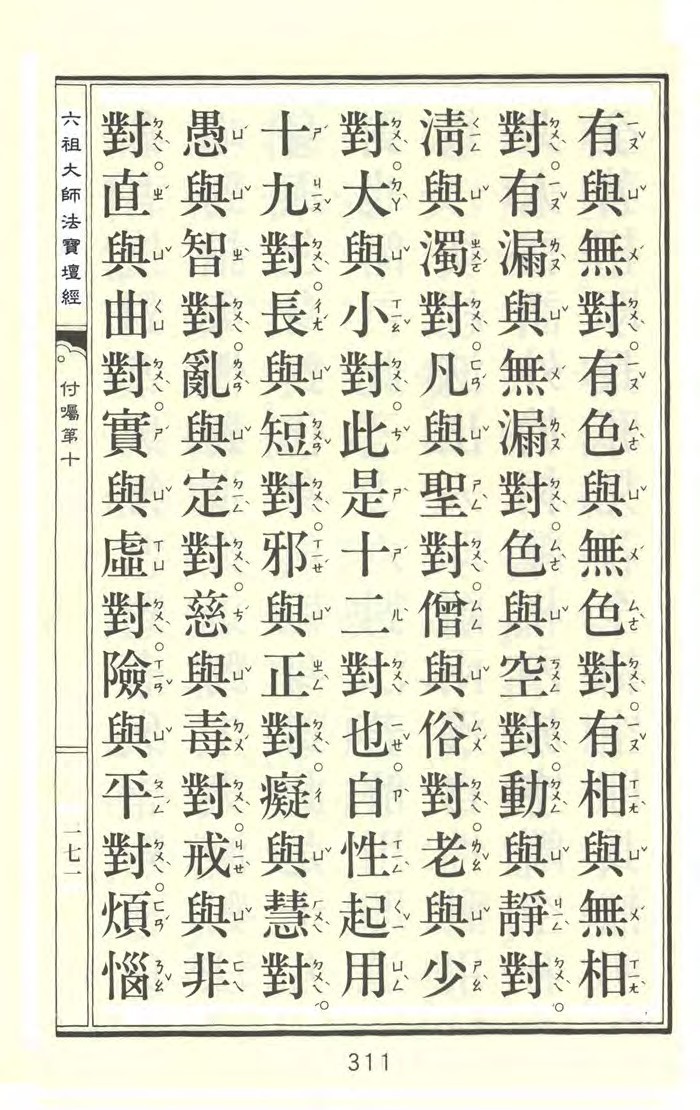 有與無對。有色與無色對。有相與無相
對。有漏與無漏對。色與空對。動與靜對。
清與濁對。凡與聖對。僧與俗對。老與少
對。大與小對。此是十二對也。自性起用
十九對。長與短對。邪與正對。癡與慧對。
愚與智對。亂與定對。慈與毒對。戒與非
對。直與曲對。實與虛對。險與平對。煩惱
六祖大師法寶壇經
付囑第十
一七一
311